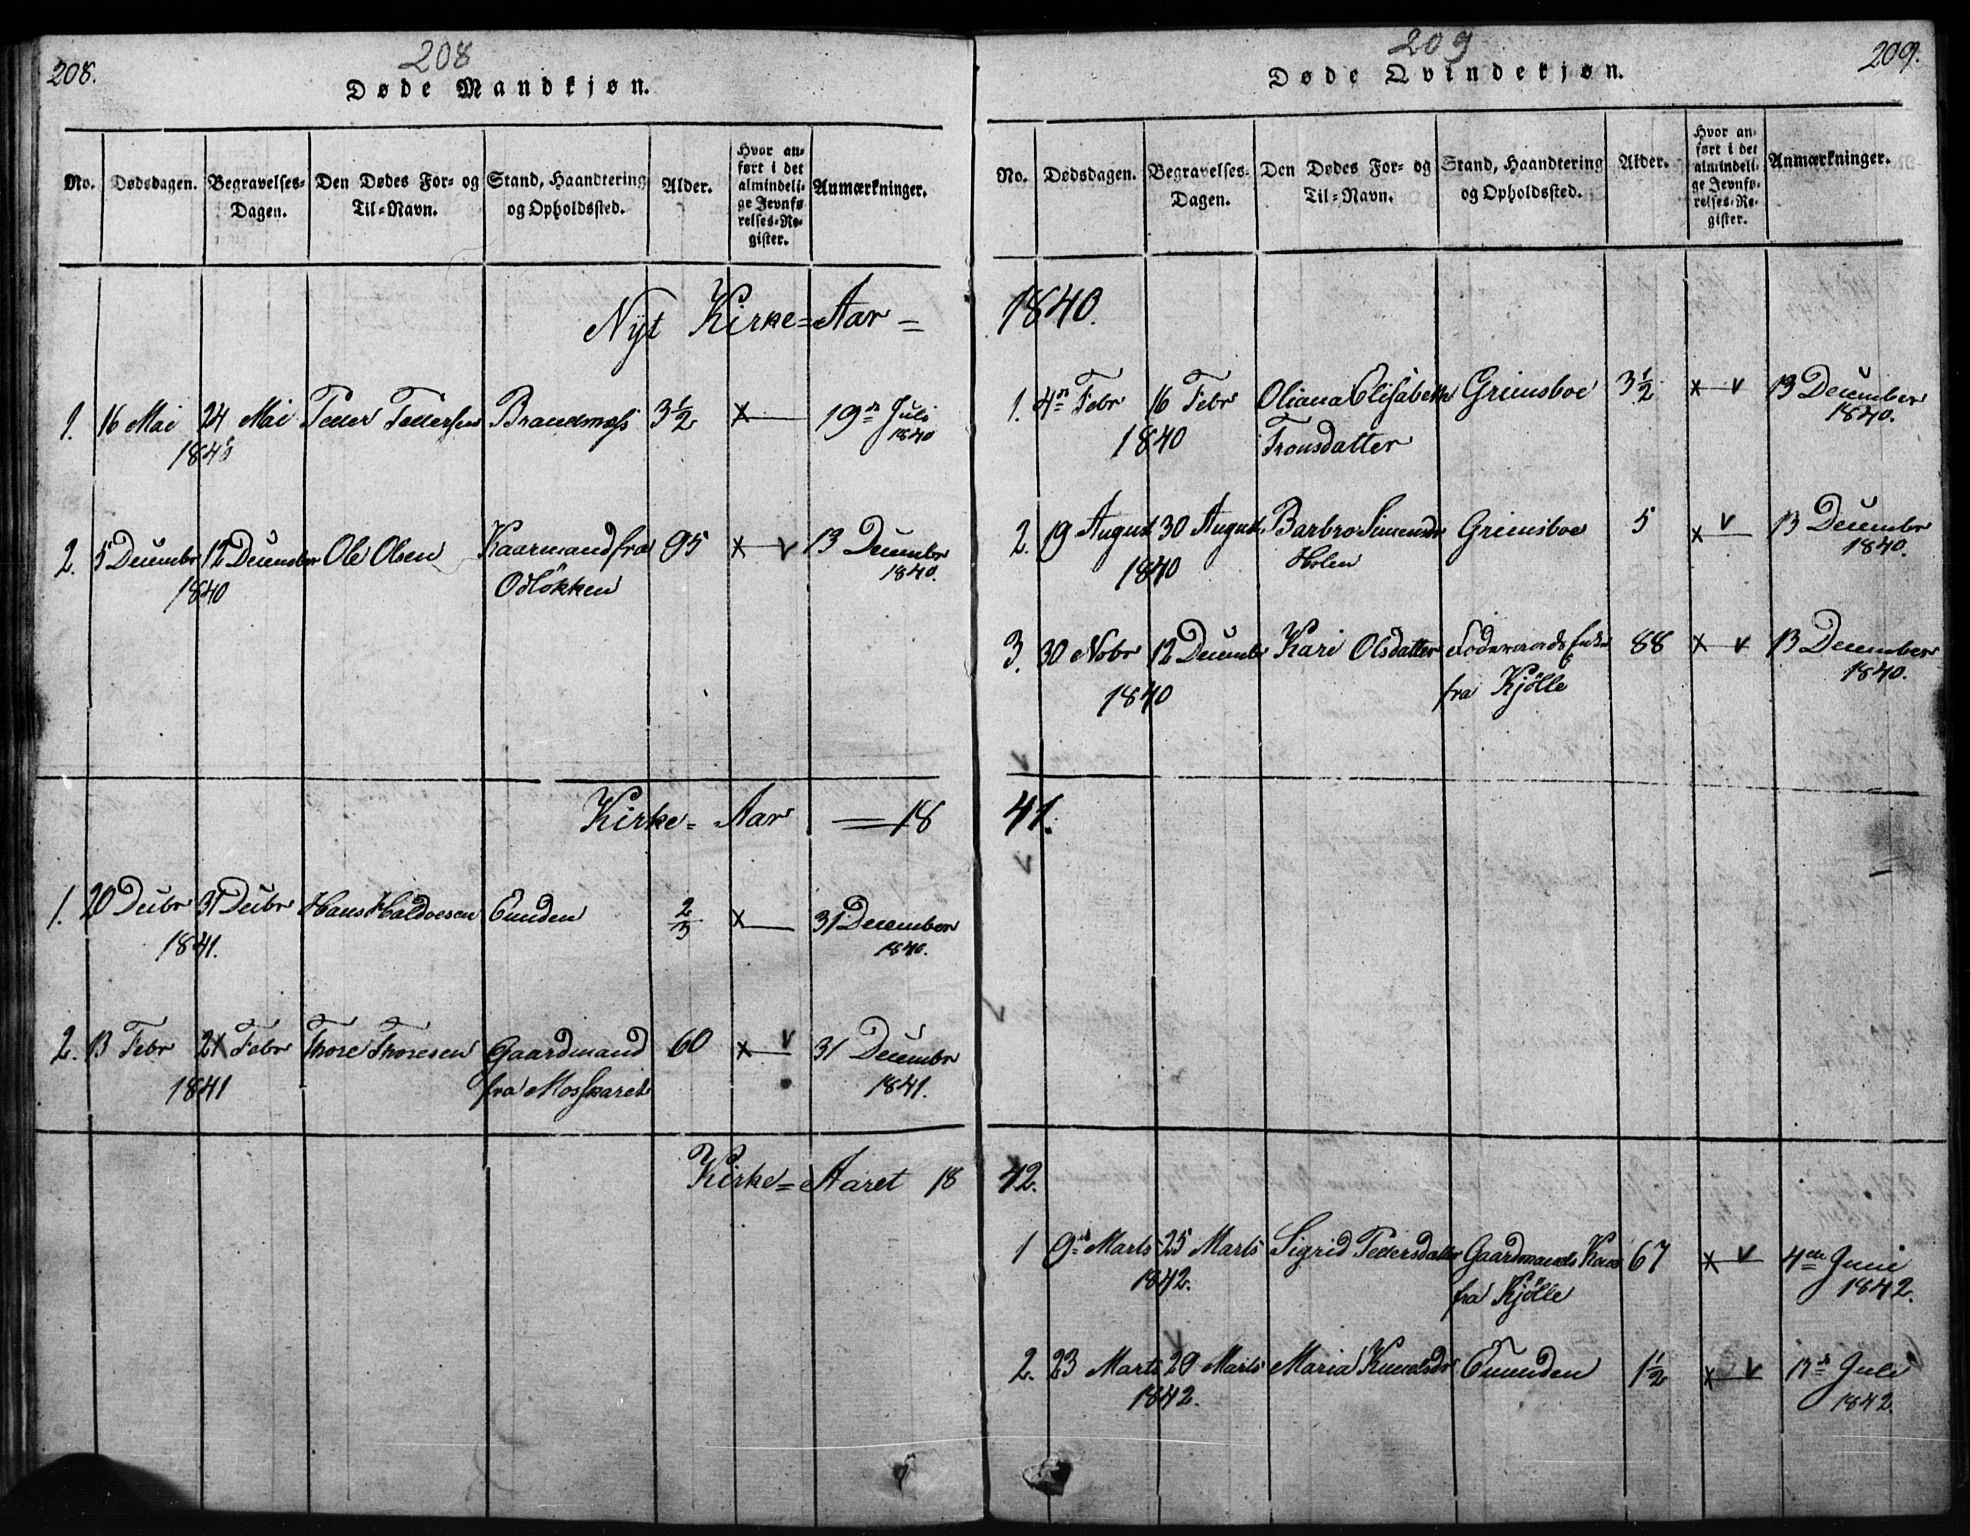 208.
208
Døde Mandkjøn.
No.
Dødsdagen.
Begravelses-
Dagen.
Den Dødes For- og
Til-Navn.
Stand, Haandtering
og Opholdssted.
Alder.
Hvor an-
ført i det
almindeli-
ge Jevnfø-
relses-Re-
gister.
Anmærkninger.
Nyt Kirke=Aar =
1. 16 Mai 24 Mai Peder Pedersen Brandmoss 3 1/2 x 19de Juli
1840 1840
2. 5 Decembr 12 Decembr Ole Olsen Kaarmand fra 95 x v 13 Decembr
1840 Odløkken 1840.
Kirke= Aar = 18
1. 20 Decbr 31 Decbr Hans Haldoesen Enunden 2/3 x 31 December
1841. 1840.
2. 13 Febr 21 Febr Thore Thoresen Gaardmand 60 x v 31 Decembr
1841 fra Moskaret 1841.
Kirke= Aaret 18
209
209.
Døde Qvindekjøn.
No.
Dødsdagen.
Begravelses-
Dagen.
Den Dødes For- og
Til-Navn.
Stand, Haandtering
og Opholdssted.
Alder.
Hvor an-
ført i det
almindeli-
ge Jevnfø-
relses-Re-
gister.
Anmærkninger.
1840.
1. 4de Febr 16 Febr Oliana Elisabeth Grimsboe 3 1/2 x v 13 December
1840 Tronsdatter 1840.
2. 19 August 30 August Barbro Simensdr Grimsboe 5 x v 13 Decembr
1840 Holen 1840.
3. 30 Nobr 12 Decembr Kari Olsdatter Føderaads Enke 88 x v 13 December
1840 fra Kjølle 1840.
41.
42.
1 9de Marts 25 Marts Sigrid Pedersdatter Gaardmands Kone 67 x v 4de Juni
1842. fra Kjølle 1842.
2. 23 Marts 29 Marts Maria Knudsdr Enunden 1 1/2 x v 17de Juli
1842. 1842.